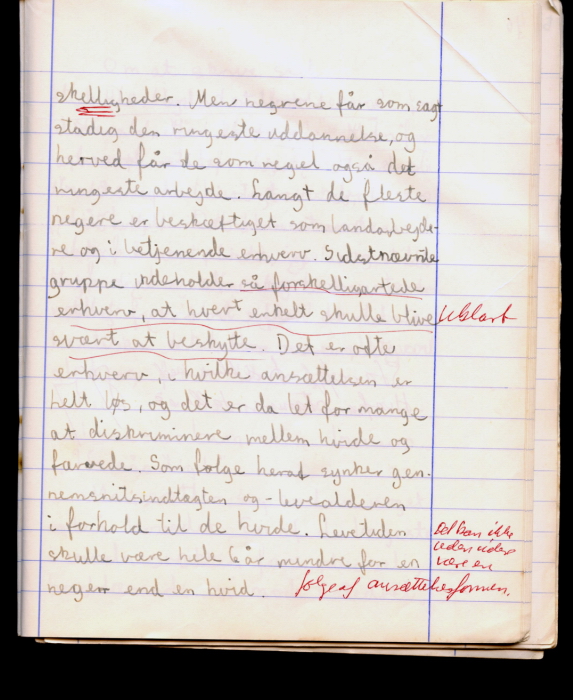 skelligheder. Men negrene får som sagt
stadig den ringeste uddannelse, og
herved får de som regel også det
ringeste arbejde. Langt de fleste
negere er beskæftiget som landarbejde-
re og i betjenende erhverv. Sidstnævnte
gruppe indeholder så forskelligartede
erhverv, at hvert enkelt skulle blive
Uklart
svært at beskytte. Det er ofte
erhverv, i hvilke ansættelsen er
helt løs, og det er da let for mange
at diskriminere mellem hvide og
farvede. Som følge heraf synker gen-
nemsnitsindtægten og -levealderen
i forhold til de hvide. Levetiden
skulle være hele 6 år mindre for en
neger end en hvid.
Det kan ikke
uden videre
være en
følge af ansættelsesformen.